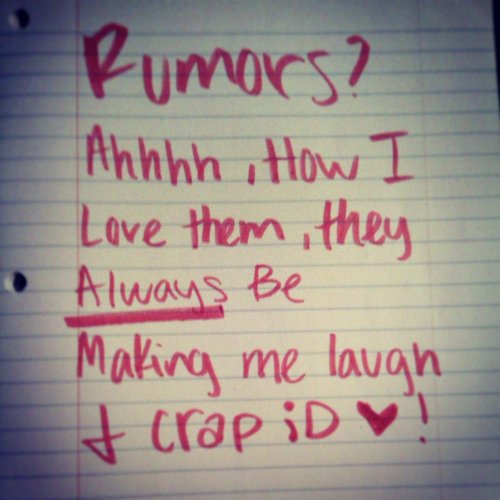 Rumors?
Ahhhh, How I
Love them, they
Always Be
Making me laugh
& crap iD ♥!